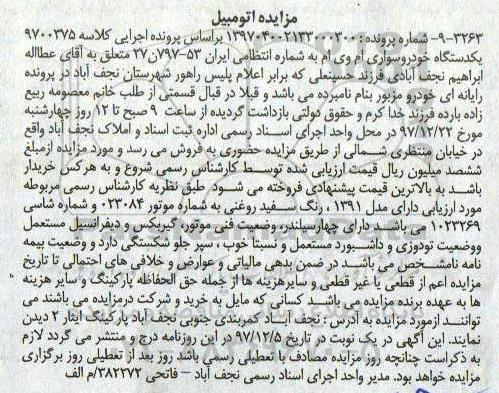 مزایده اتومبیل
۹-۳۲۶۳- شماره پرونده: ۱۳۹۷۰۴۰۰۲۱۳۳۰۰۰۲۰۰ براساس پرونده اجرایی کلاسه ۹۷۰۰۳۷۵
یکدستگاه خودروسواری ام وی ام به شماره انتظامی ایران ۵۳-۷۹۷ن۲۷ متعلق به آقای عطااله
ابراهیم نجف آبادی فرزند حسینعلی که برابر اعلام پلیس راهور شهرستان نجف آباد در پرونده
رایانه ای خودرو مزبور بنام نامبرده می باشد و قبلا در قبال قسمتی از طلب خانم معصومه ربیع
زاده بارده فرزند خدا کرم و حقوق دولتی بازداشت گردیده از ساعت ۹ صبح تا ۱۲ روز چهارشنبه
مورخ ۹۷/۱۲/۲۲ در محل واحد اجرای اسناد رسمی اداره ثبت اسناد و املاک نجف آباد واقع
در خیابان منتظری شمالی از طریق مزایده حضوری به فروش می رسد و مورد مزایده ازمبلغ
ششصد میلیون ریال قیمت ارزیابی شده توسط کارشناس رسمی شروع و به هرکس خریدار
باشد به بالاترین قیمت پیشنهادی فروخته می شود. طبق نظریه کارشناس رسمی مربوطه
مورد ارزیابی دارای مدل ۱۳۹۱ ، رنگ سفید روغنی به شماره موتور ۰۲۳۰۸۴ و شماره شاسی
۱۰۲۳۲۶۹ می باشد دارای چهارسیلندر، وضعیت فنی موتور، گیربکس و دیفرانسیل مستعمل
ووضعیت تودوزی و داشبورد مستعمل و نسبتا خوب ، سپر جلو شکستگی دارد و وضعیت بیمه
نامه نامشخص می باشد در ضمن بدهی مالیاتی و عوارض و خلافی های احتمالی تا تاریخ
مزایده اعم از قطعی یا غیر قطعی و سایرهزینه ها از جمله حق الحفاظه پارکینگ و سایر هزینه
ها به عهده برنده مزایده می باشد کسانی که مایل به خرید و شرکت درمزایده می باشند می
توانند ازمورد مزایده به آدرس : نجف آباد کمربندی جنوبی نجف آباد پارکینگ ایثار ۲ دیدن
نمایند. این آگهی در یک نوبت در تاریخ ۹۷/۱۲/۵ در این روزنامه درج و منتشر می گردد لازم
به ذکراست چنانچه روز مزایده مصادف با تعطیلی رسمی باشد روز بعد از تعطیلی روز برگزاری
مزایده خواهد بود. مدیر واحد اجرای اسناد رسمی نجف آباد – فاتحی ۳۸۲۲۷۲/م الف